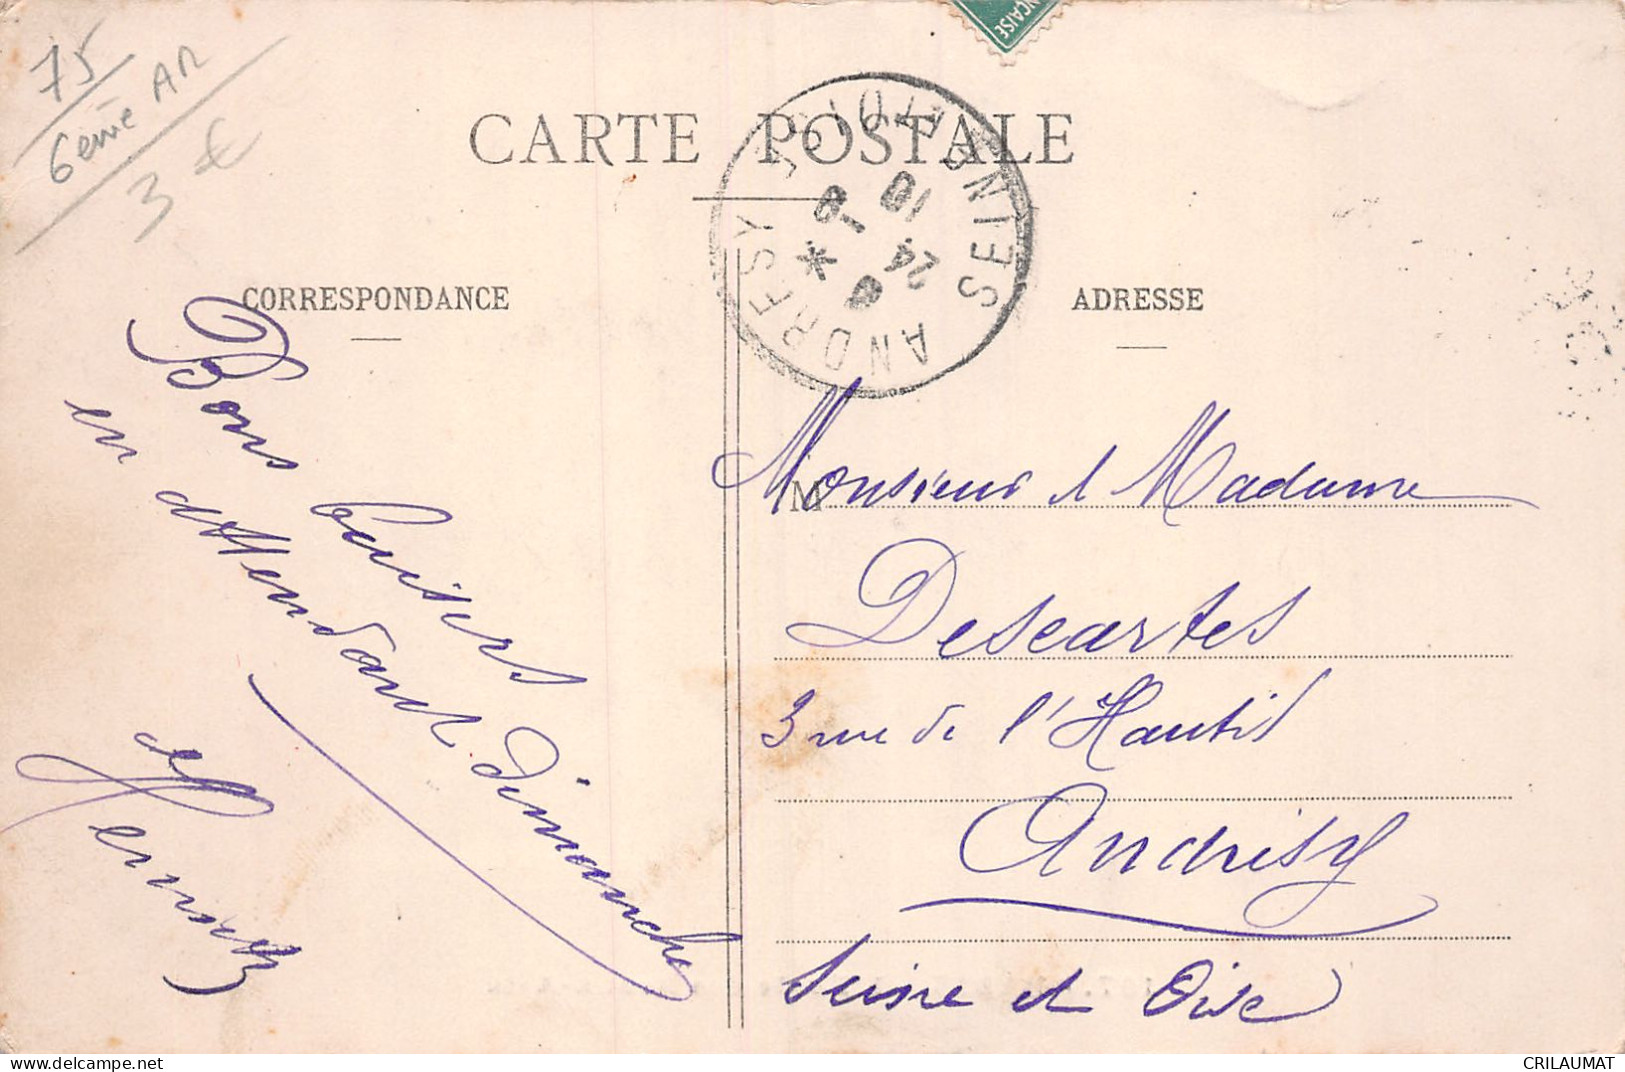 75
6ème AR
3 €
FRANÇAISE
CARTE POSTALE
ANDRESY SEINE ET OISE
24
10
CORRESPONDANCE
ADRESSE
Bons baisers
en attendant dimanche
de
M
Monsieur et Madame
Descartes
3 rue de l'Hautil
Andrésy
Seine et Oise
CRILAUMAT